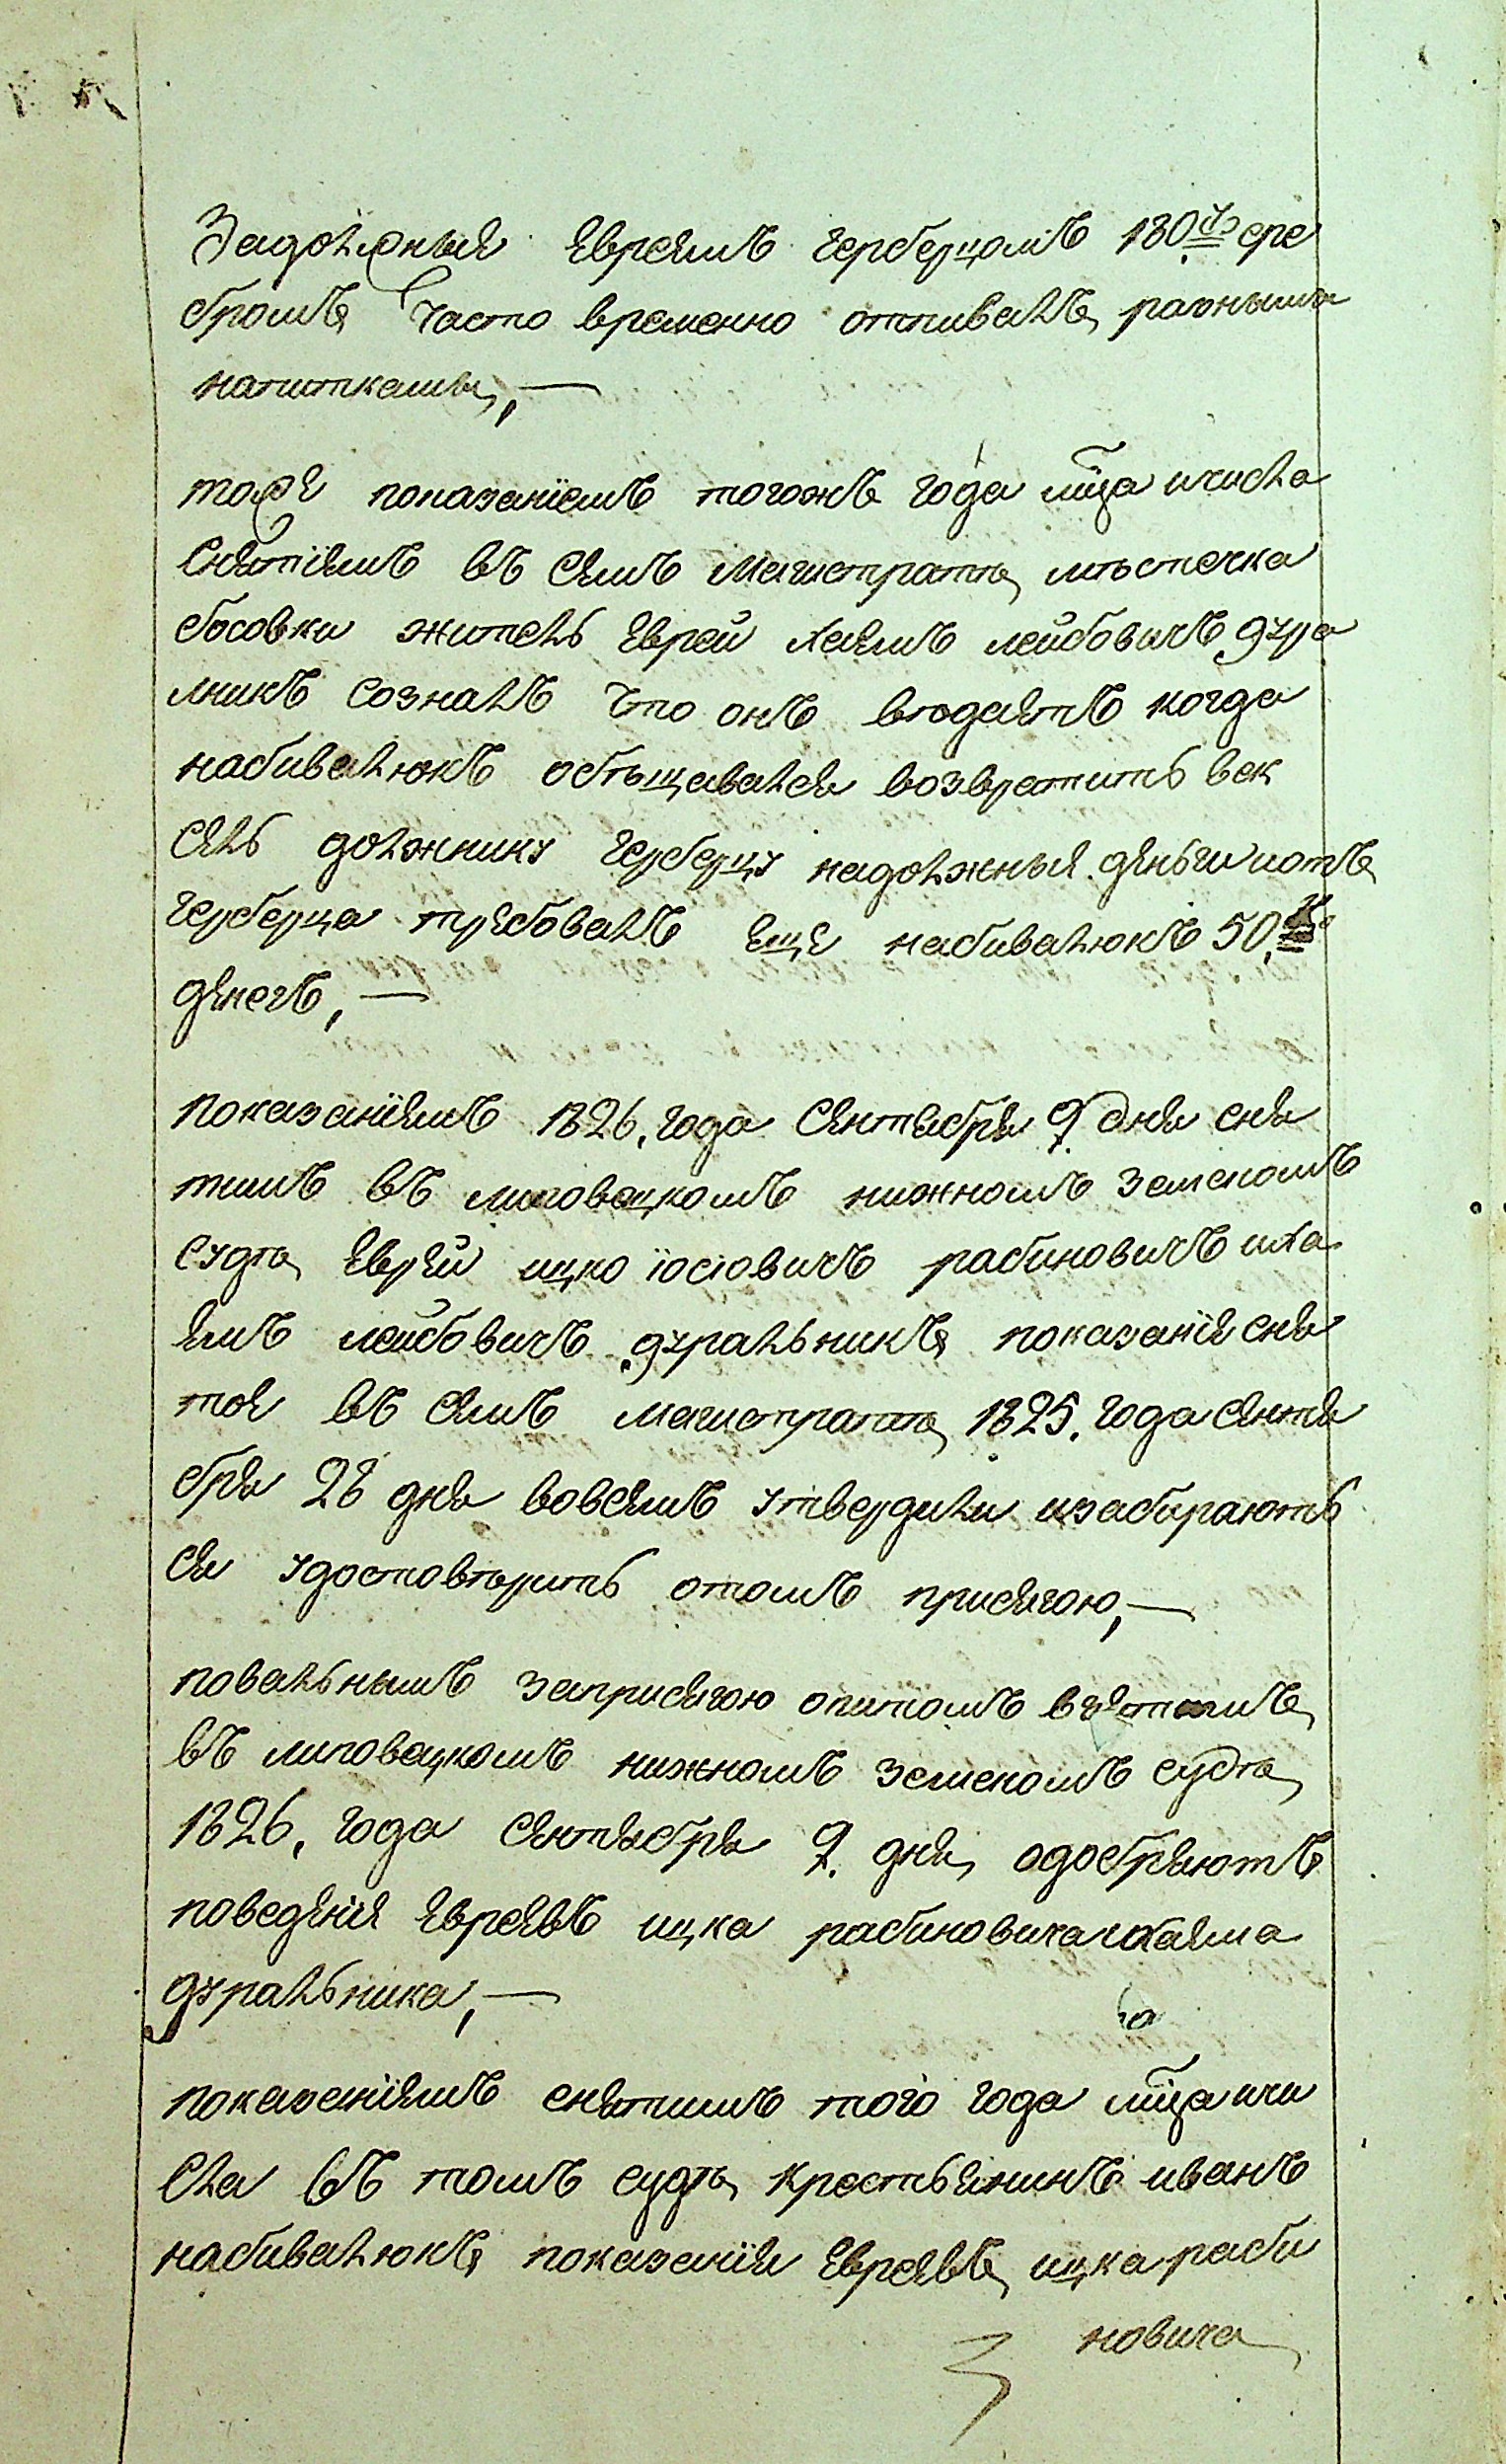 Задолжныя Евреямъ Герберцомъ 180 р сре
бромъ часто временно отпивалъ, разными
напитками, —
тоже показаніемъ тогожъ года мца ичисла
Снятіямъ въ Семъ Магистратѣ, мѣстечка
босовки житель Еврей Хаямъ лейбовичъ дура
лникъ Созналъ Что онъ вѣдаятъ когда
набивалюкъ обѣщавался возвратить век
сяль должнику Герберцу надолжныя деньги иотъ
Герберца требовалъ Еще набивалюкъ 50. р
дянегъ, —
показаніямъ 1826. года Сянтября 9. дня сня
тимъ въ липовецкомъ нижномъ земскомъ
Судѣ, Еврей ицко іосіовичъ рабиновичъ иХа
ямъ лейбовичъ дуральникъ, показанія сня
тоя въ Семъ Магистратѣ, 1825. года Сянтя
бря 28 дня вовсемъ утвердили изабираютъ
ся удостовѣрить отомъ присягою, —
повальнымъ заприсягою опитомъ взятимъ,
въ липовецкомъ нижномъ земскомъ судѣ,
1826. года Сянтября 9. дня, одобряютъ
поведянія Евреявъ ицка рабиновича иХаяма
дуральника, —
показаніямъ снятимъ того года мца ичи
Сла въ томъ судѣ, крестьянинъ иванъ
набивалюкъ, показанія Евреявъ, ицка раби
новича